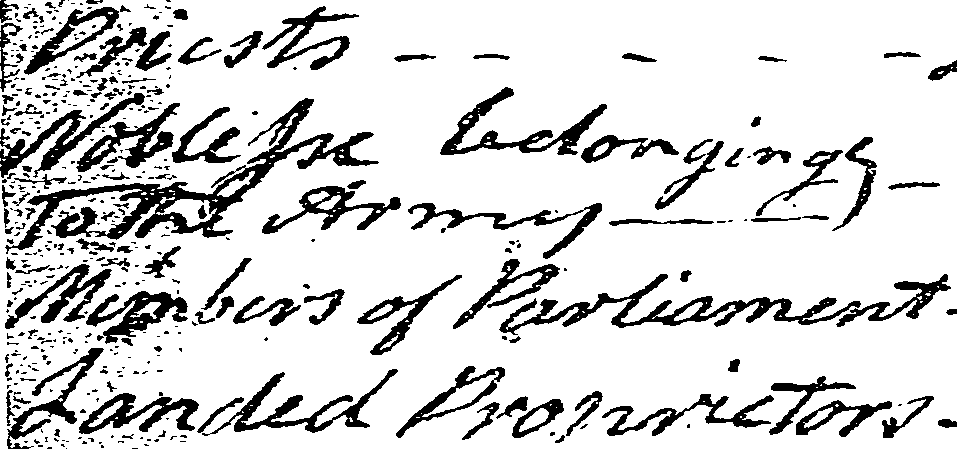 Priests - - - - -
Noblesse belonging }
To the Army - - }
Members of Parliament -
Landed Proprietors -